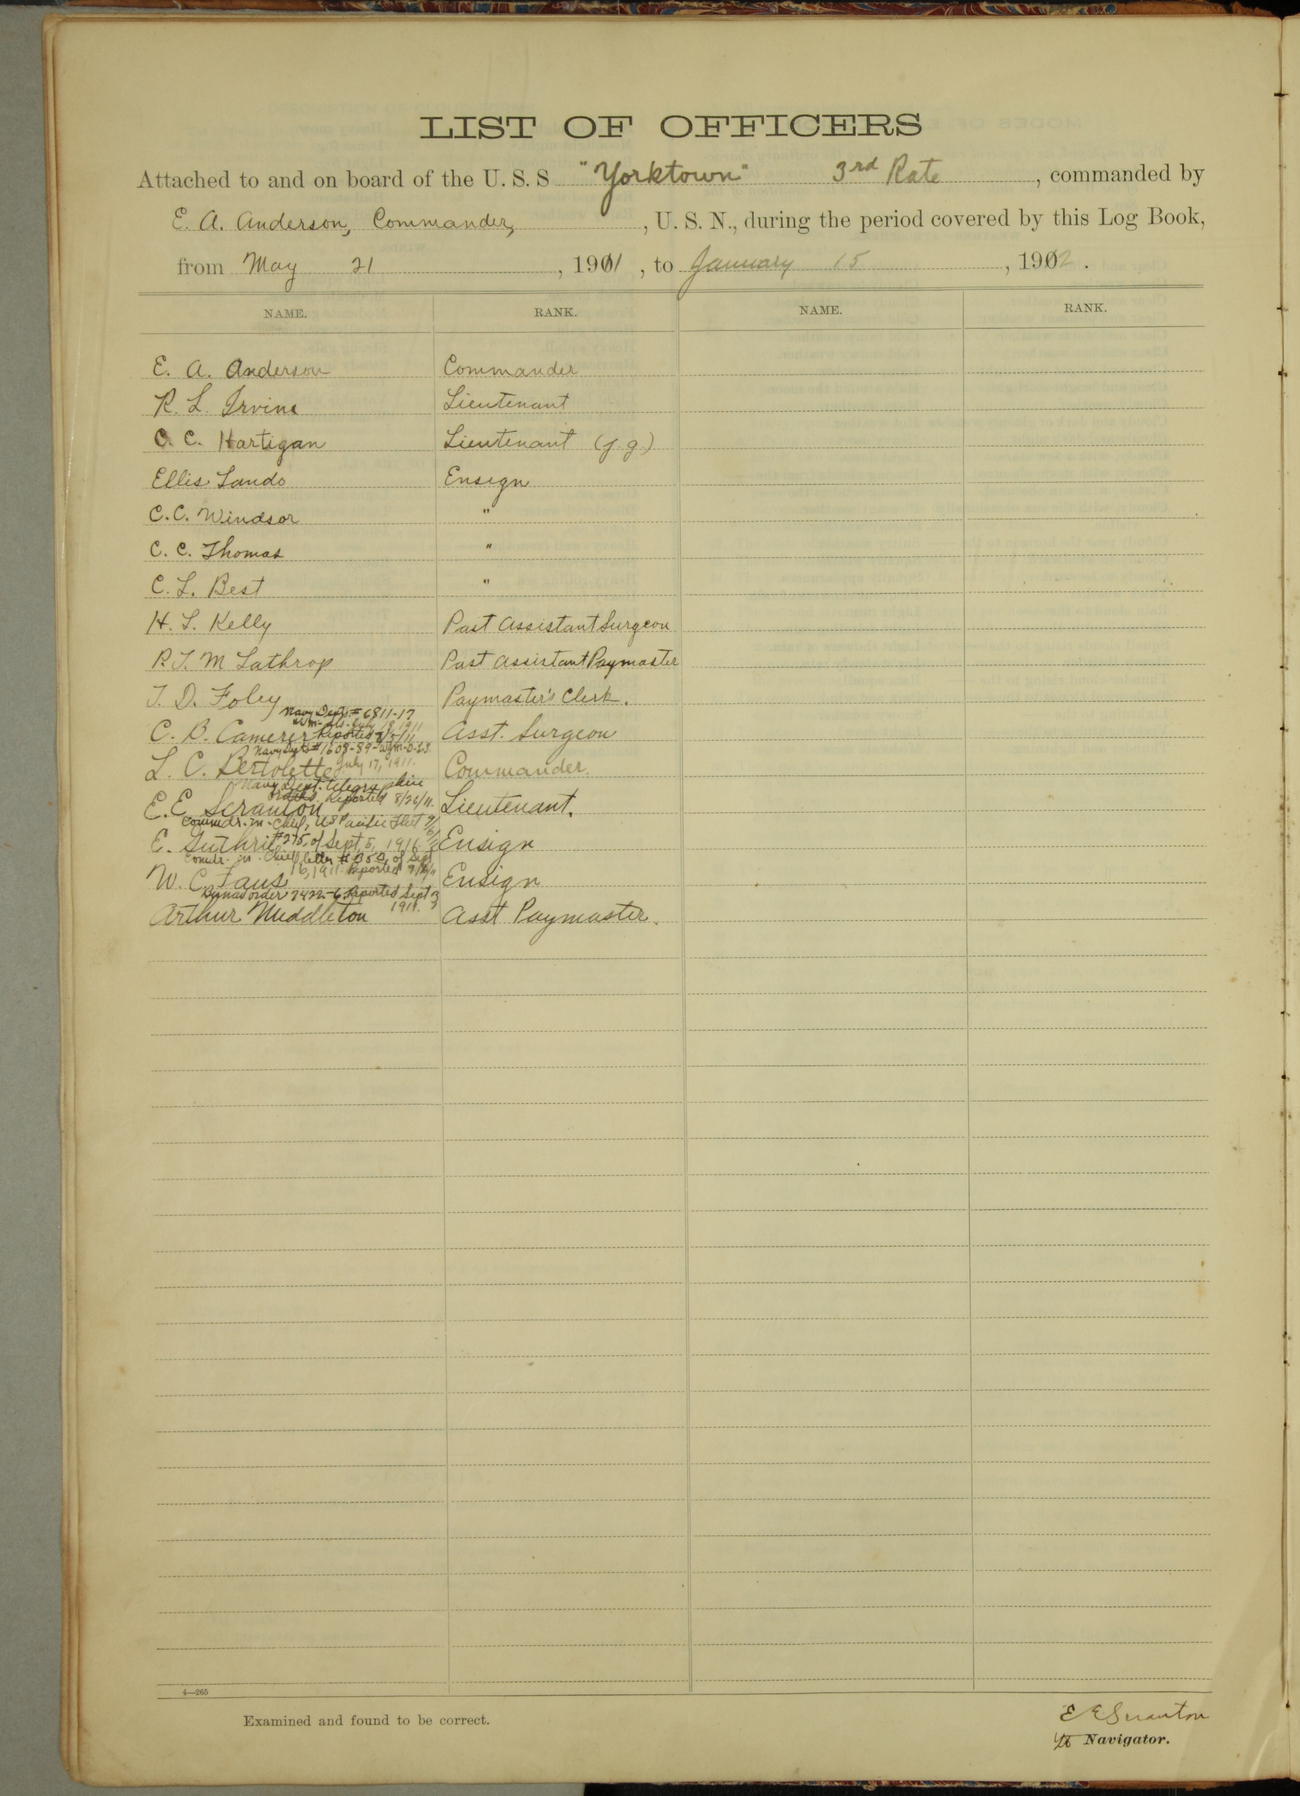 LIST OF OFFICERS
Attached to and on board of the U. S. S "Yorktown" 3rd Rate, commanded by
E. A. Anderson, Commander, , U. S. N., during the period covered by this Log Book,
from May 21, 1911, to January 15, 1912.
NAME. RANK. NAME. RANK.
E. A. Anderson Commander
R. L. Irvine Lieutenant
C. C. Hartigan Lieutenant (j.g.)
Ellis Lando Ensign
C. C. Windsor "
C. C. Thomas "
C. L. Best "
H. L. Kelly Past Assistant Surgeon
P. T. M Lathrop Past Assistant Paymaster
T. D. Foley Paymaster's Clerk.
Navy Dept # 6811-17
July 18 1911
C. B. Camerer Reported Asst. Surgeon
Navy Dept # 1608-89
L. C. Bertolette July 17, 1911. Commander.
Navy Dept. telegram
Reported 8/26/11.
E. E. Scranton Lieutenant.
Commdr. in Chief, US Pacific Fleet
E. Guthrie #275, of Sept. 5, 1916 Ensign
Comdr. in Chief letter of Sept
6, 1911. Reported
W. C. Faus Ensign
Bunav order 7422-6 Reported Sept 3
1911.
Arthur Middleton Asst Paymaster.
4—265
Examined and found to be correct.
E E Scranton
Navigator.